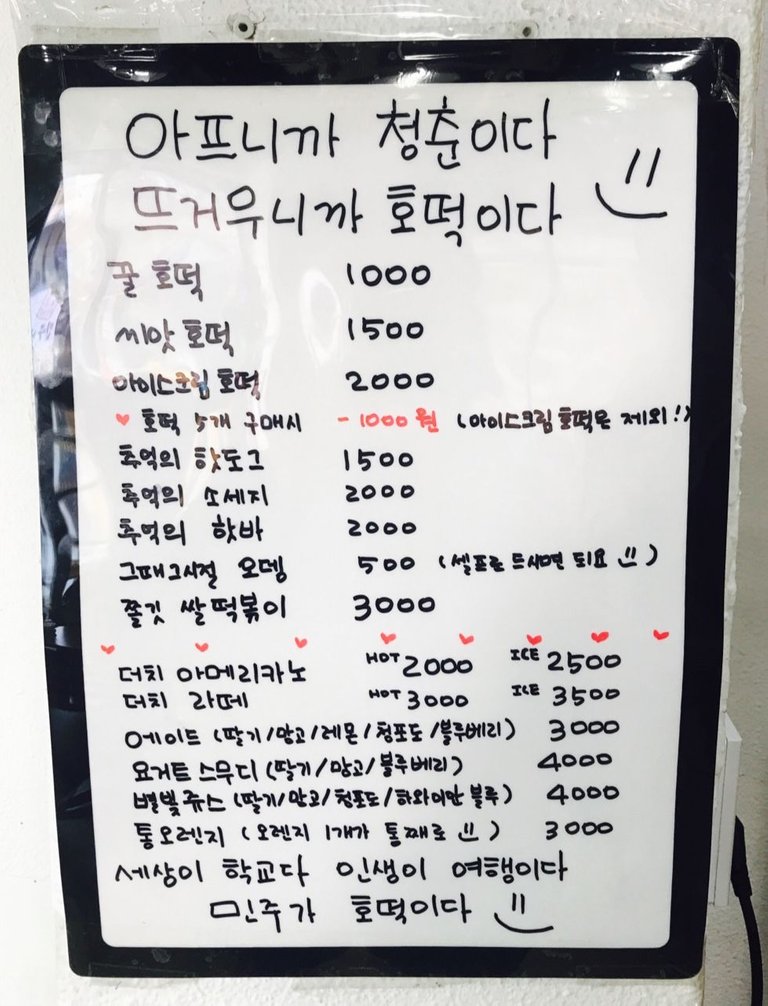 아프니까 청춘이다
뜨거우니까 호떡이다
꿀호떡 1000
씨앗호떡 1500
아이스크림호떡 2000
호떡 5개 구매시 -1000원 (아이스크림호떡은 제외!)
추억의 핫도그 1500
추억의 소세지 2000
추억의 핫바 2000
그때그시절 오뎅 500 (셀프로 드시면 되요)
쫄깃 쌀떡볶이 3000
더치 아메리카노 HOT 2000 ICE 2500
더치 라떼 HOT 3000 ICE 3500
에이드 (딸기/망고/레몬/청포도/블루베리) 3000
요거트 스무디 (딸기/망고/블루베리) 4000
별빛쥬스 (딸기/망고/청포도/하와이안 블루) 4000
통오렌지 (오렌지 1개가 통째로) 3000
세상이 학교다 인생이 여행이다
민주가 호떡이다